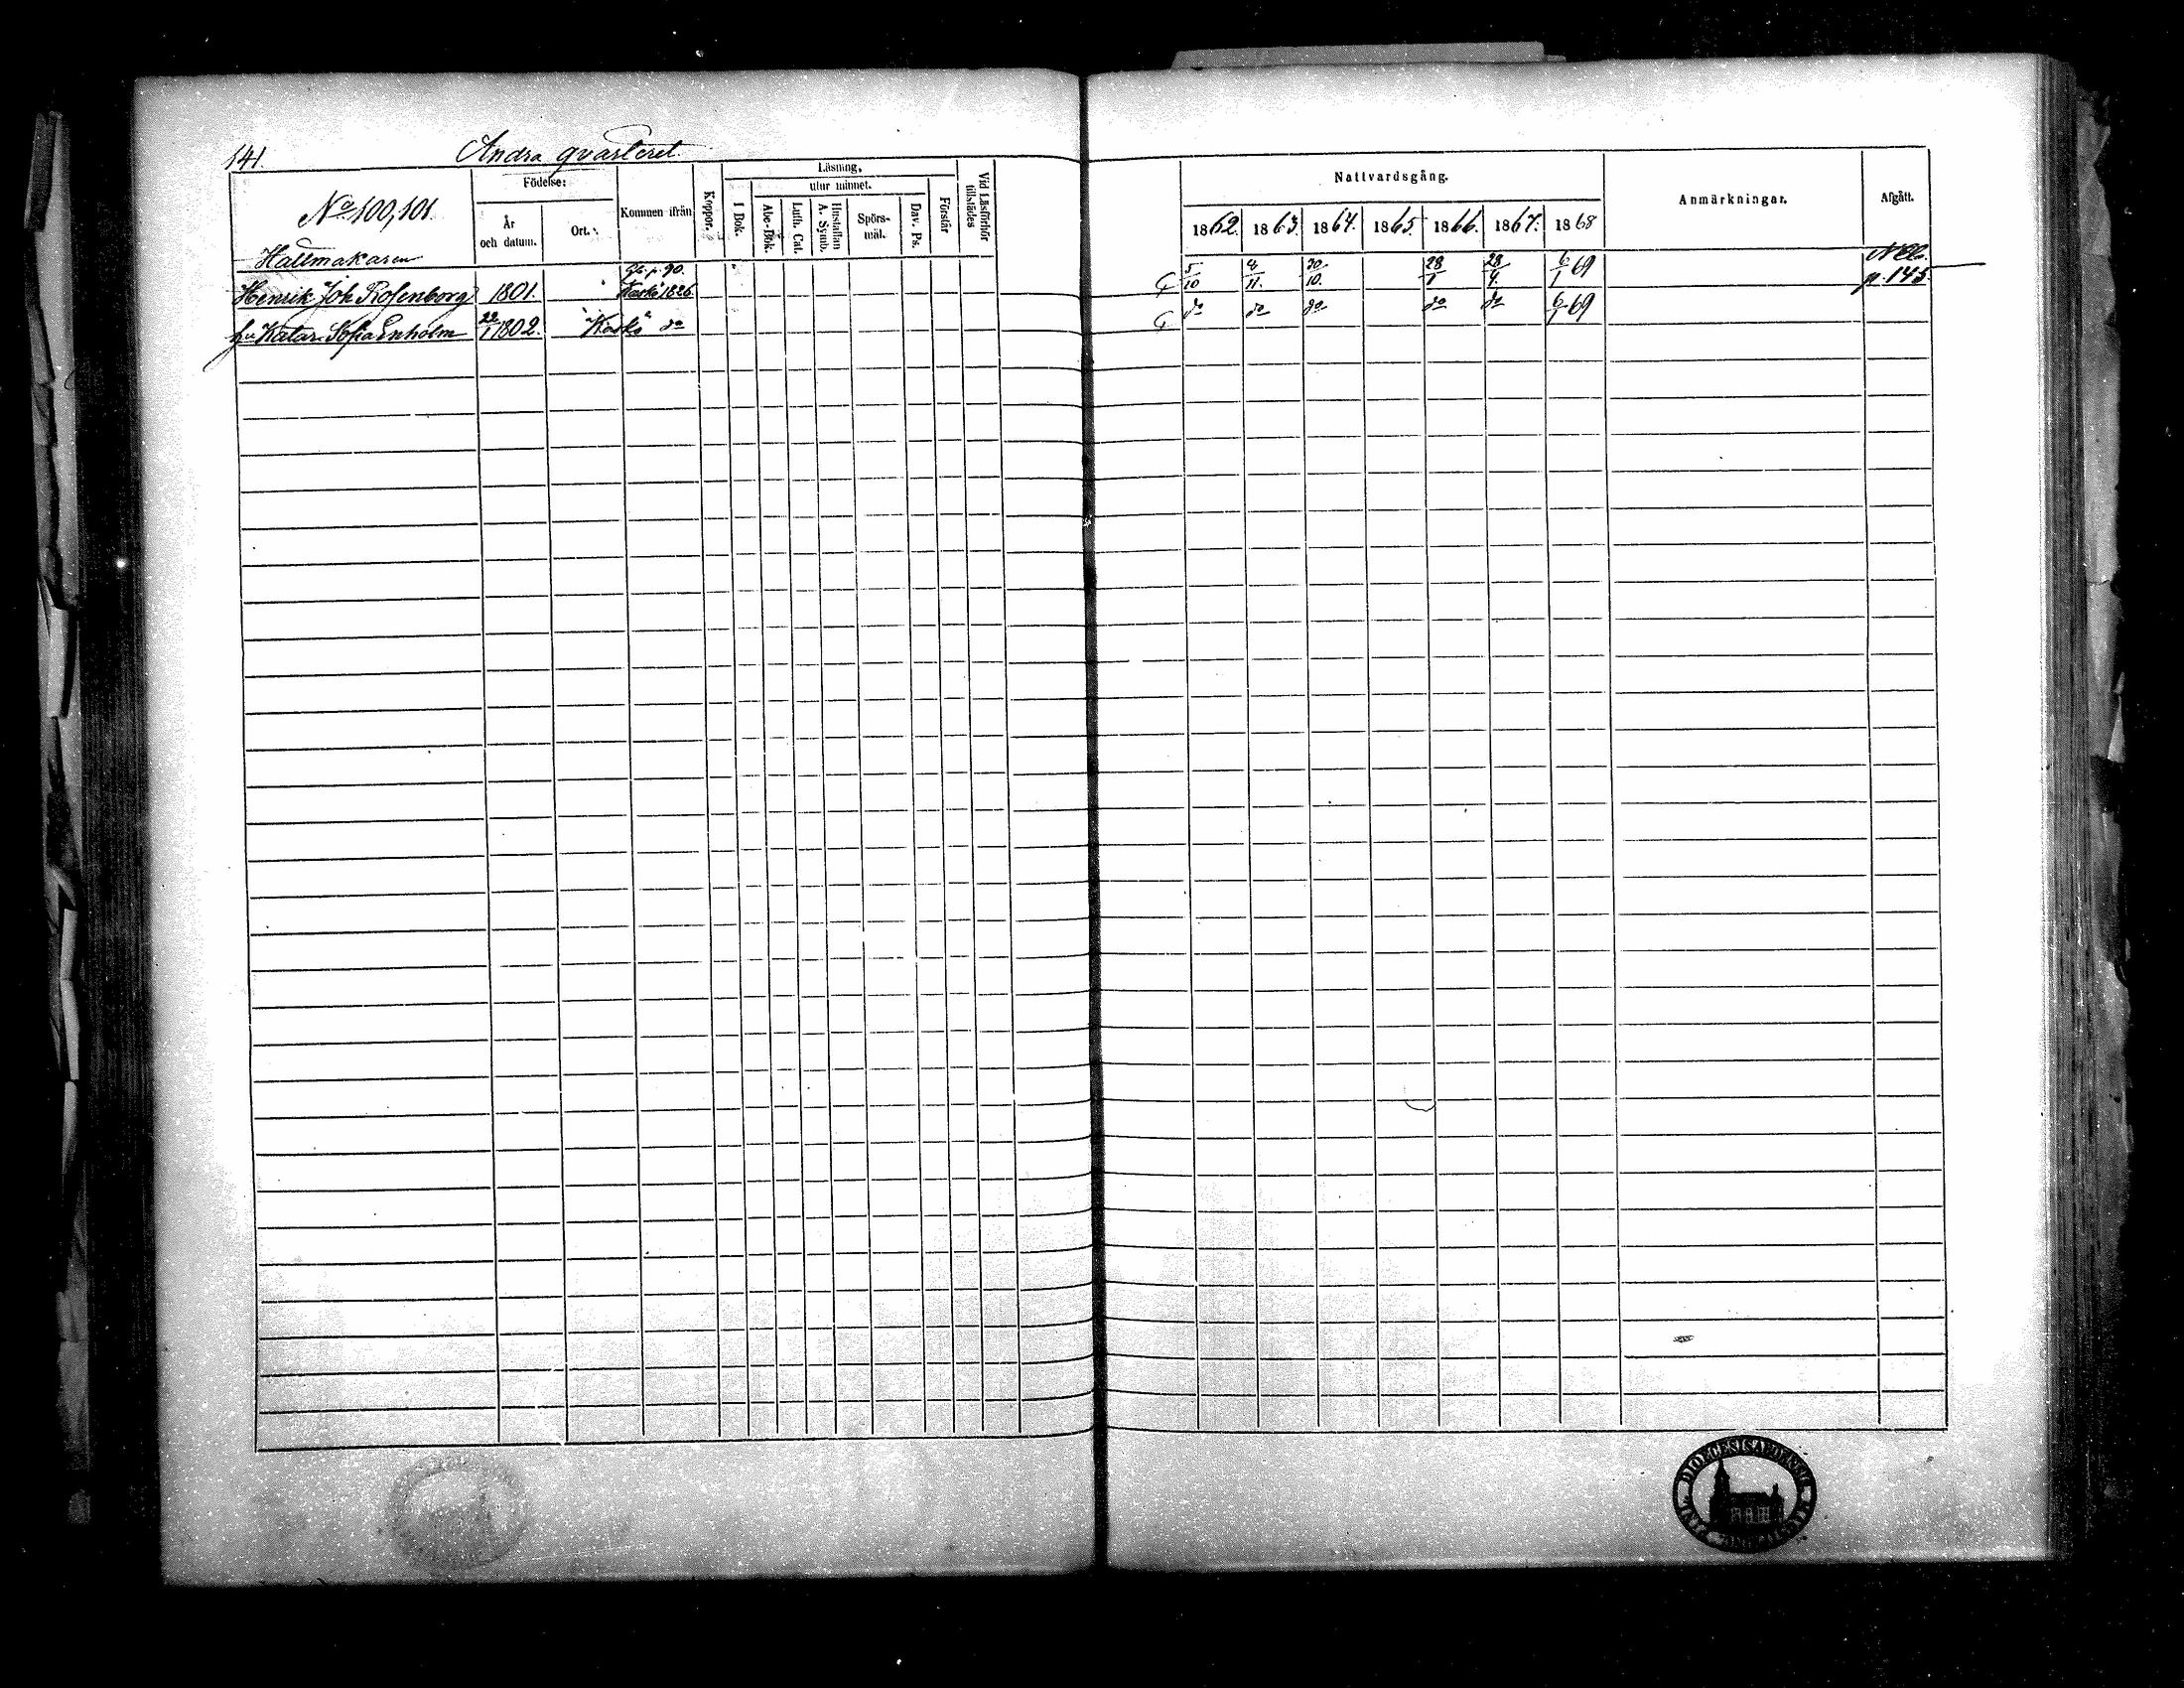 141. Andra qvarteret.
No 100, 101
Födelse:
År och datum.
Ort.
Kommen ifrån
Koppor.
Läsning,
utur minnet.
I Bok.
Abc-Bok.
Luth. Cat.
Hustaflan A. Symb.
Spörs-mål.
Dav. Ps.
Förstår
Vid Läsförhör tillstädes
Nattvardsgång.
1862. 1863. 1864. 1865. 1866. 1867. 1868
Anmärkningar.
Afgått.
Hattmakaren
Henrik Joh. Rosenborg 1801. p. 90. Kaskö 1826. 5/10 /11. 30/10. 28/1 28/4. 6/1 69 p. 145
hu Katar. Sofia Enholm 22/1 1802. Kaskö do do do do do do 6/1 69
DIOECESIS ABOENSIS